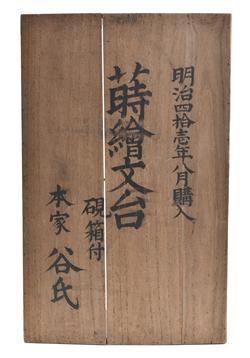 明治四拾壱年八月購入
蒔繪文台
硯箱付
本家 谷氏